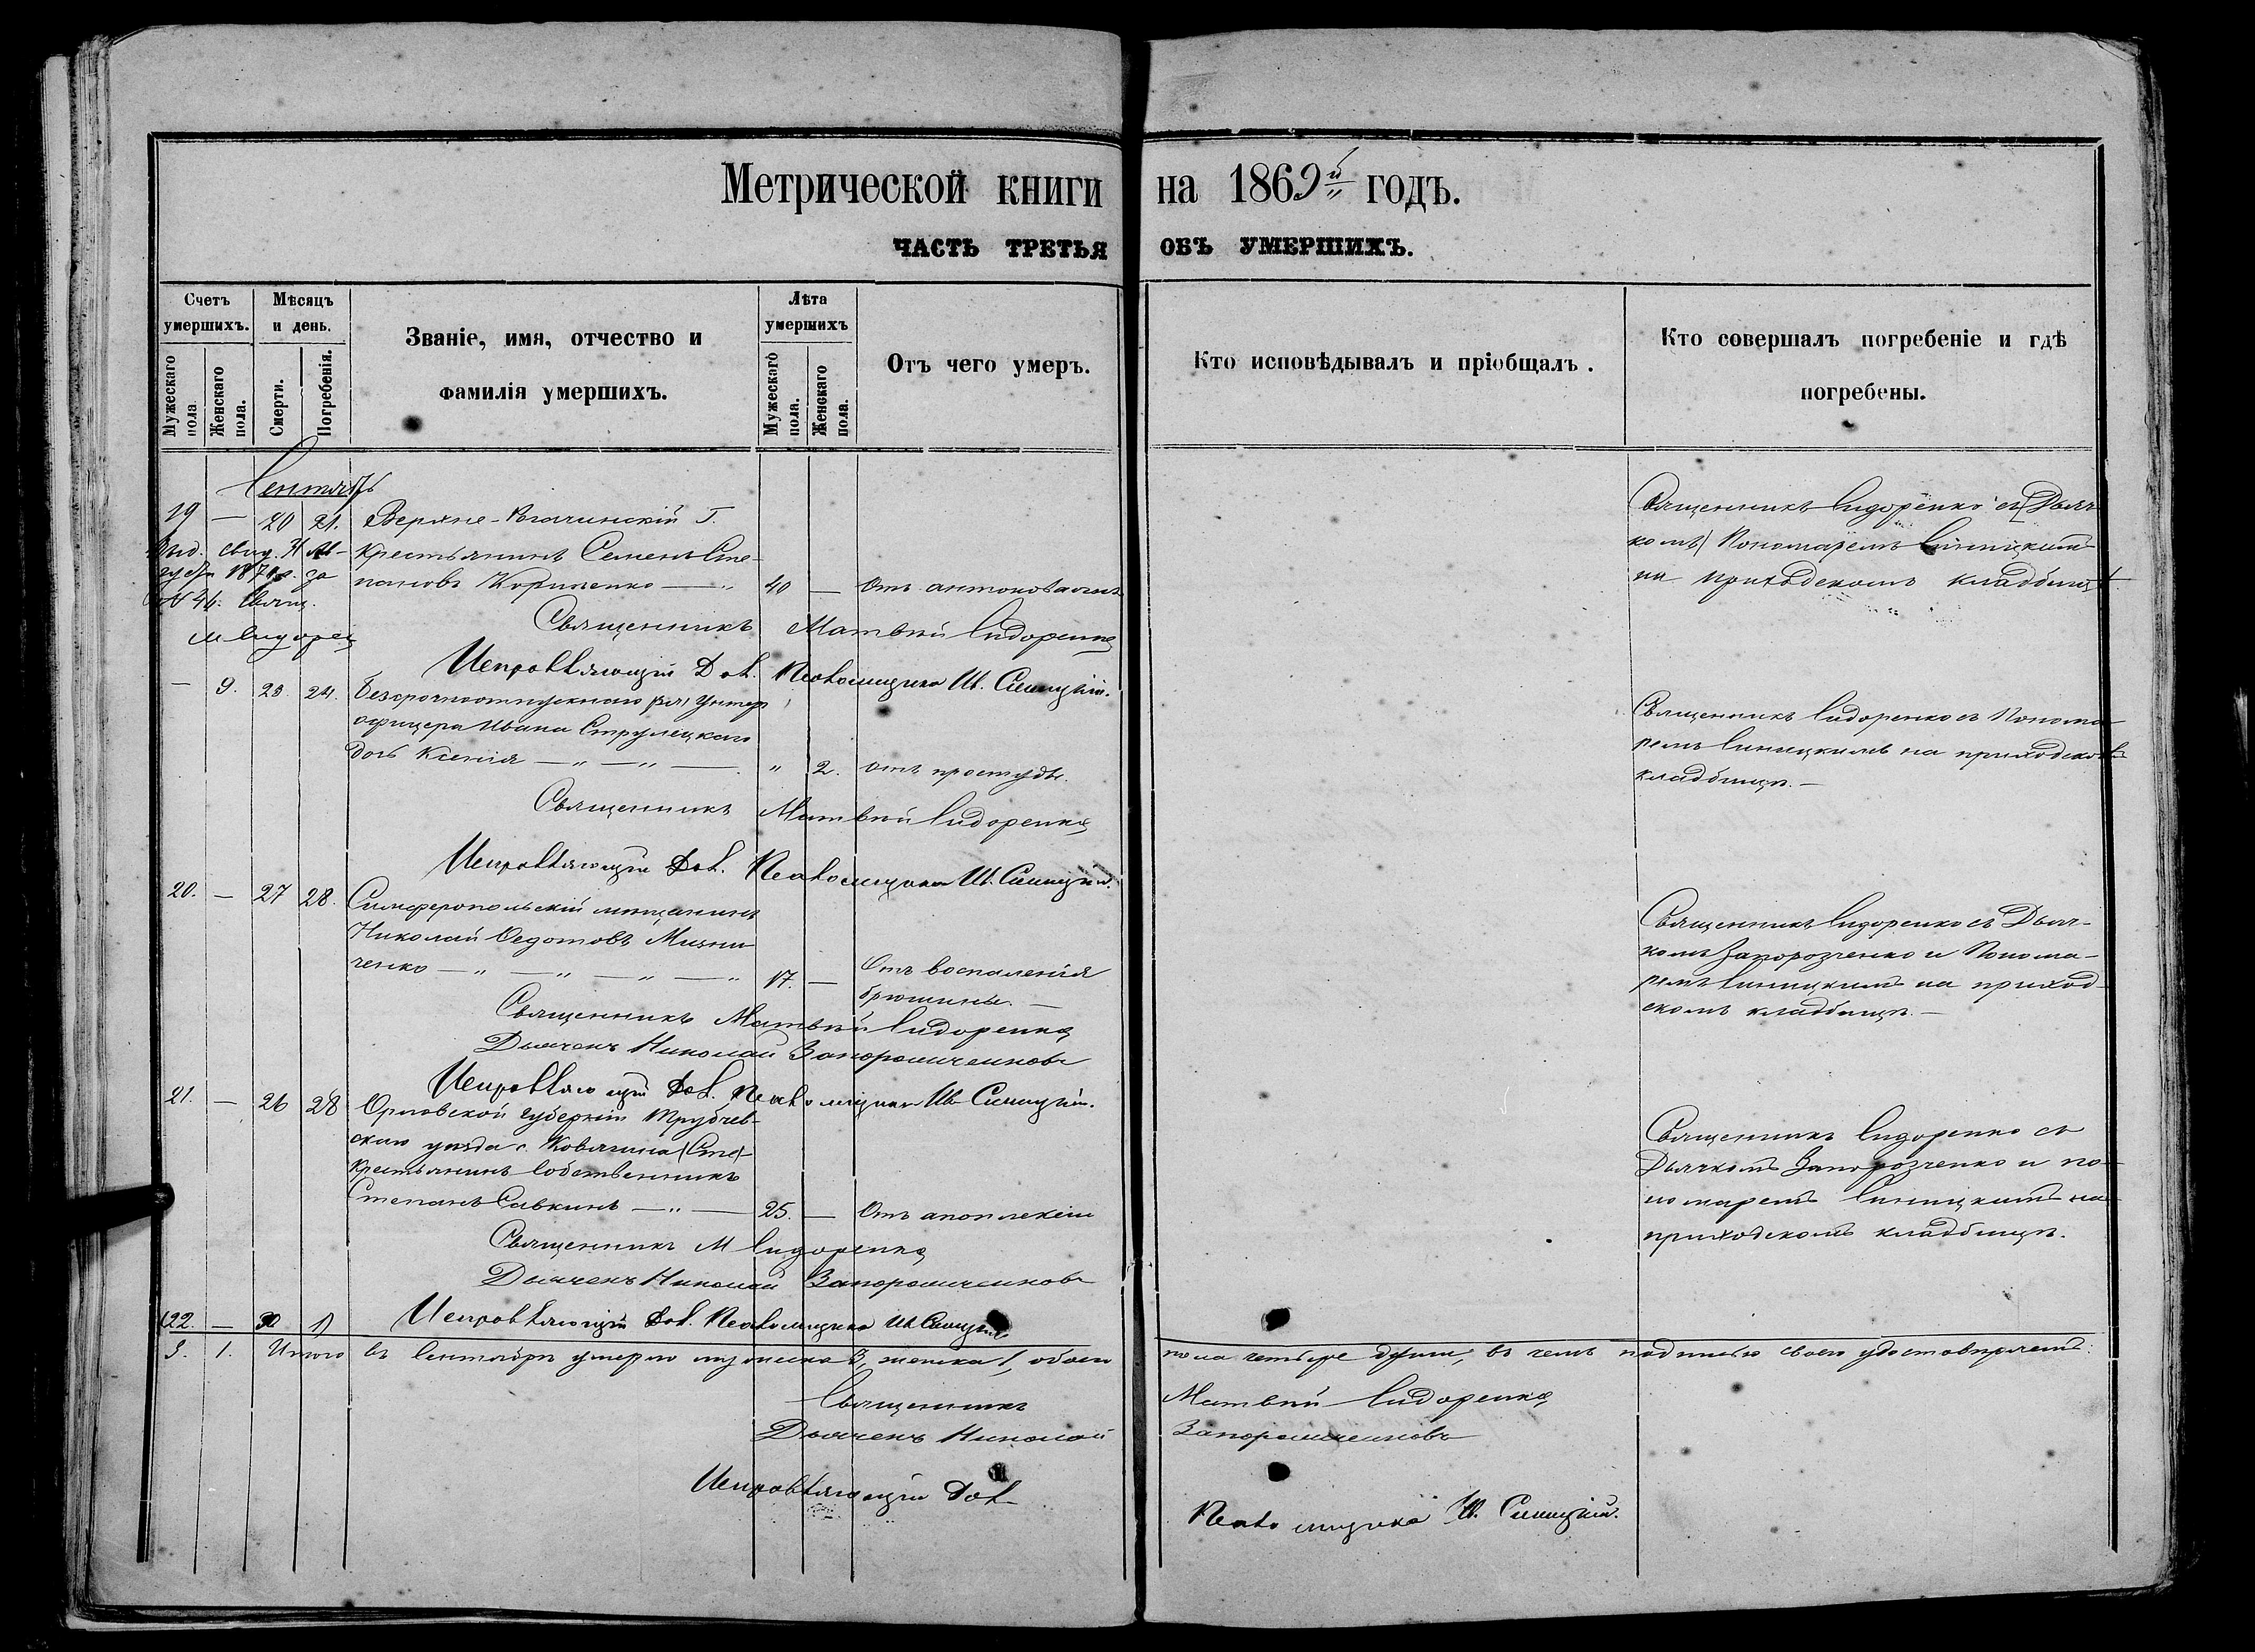 Метрической книги на 1869й годъ.
ЧАСТЬ ТРЕТЬЯ ОБЪ УМЕРШИХЪ.
Счетъ умершихъ.
Мужескаго пола
Женскаго пола.
Мѣсяцъ и день.
Смерти.
Погребенія.
Званіе, имя, отчество и
фамилія умершихъ.
Лѣта умершихъ
Мужескаго пола.
Женскаго пола.
Отъ чего умеръ.
Кто исповѣдывалъ и пріобщалъ.
Кто совершалъ погребеніе и гдѣ
погребены.
Сентябрь
19 — 20 21. Верхне-Рогачинскій Г.
крестьянинъ Семенъ Сте-
пановъ 40 — Отъ
Выд. свид. Ав-
густа 1870 г. за
№ 46. Свящ.
М Сидорен
Священникъ Сидоренко съ Дьяч
комъ Пономаремъ Синицкимъ
на приходскомъ кладбищѣ
Священникъ Матвѣй Сидоренко
Исправляющій Дол. Псаломщика Ив. Синицкій.
— 9. 23. 24. Безсрочноотпускнаго Унтер
офицера Ивана Струлецкаго
дочь Ксенія — " — " — " 2. отъ простуды.
Священникъ Сидоренко съ Понома
ремъ Синицкимъ на приходском
кладбищѣ. —
Священникъ Матвѣй Сидоренко
Исправляющій Дол. Псаломщика Ив. Синицкій.
20. — 27 28. Симферопольскій мѣщанинъ
Николай Ѳедотовъ Мизни
ченко — " — " — " — " 17. — Отъ воспаленія
брюшины. —
Священникъ Сидоренко съ Дьяч-
комъ Запорозченко и Понома-
ремъ Синицкимъ на приход-
скомъ кладбищѣ. —
Священникъ Матвѣй Сидоренко
Дьячекъ Николай Запорожченковъ
Исправляющій Дол. Псаломщика Ив. Синицкій.
21. — 26 28 Орловской губерніи Трубчев-
скаго уѣзда с. (Сте)
крестьянинъ собственникъ
Степанъ Савкинъ — " — 25. — Отъ апоплексіи
Священникъ Сидоренко съ
Дьячкомъ Запорозченко и по-
номаремъ Синицкимъ на
приходскомъ кладбищѣ.
Священникъ М Сидоренко
Дьячекъ Николай Запорожченковъ
Исправляющій Дол. Псаломщика Ив Синицкій
22. — 30 1
3. 1. Итого въ Сентябрѣ умерло мужеска 3, женска 1, обоего пола четыре души, въ чемъ подписью своею удостовѣряемъ:
Священникъ Матвѣй Сидоренко
Дьячекъ Николай Запорожченковъ
Исправляющій Дол. Псаломщика Ив. Синицкій.